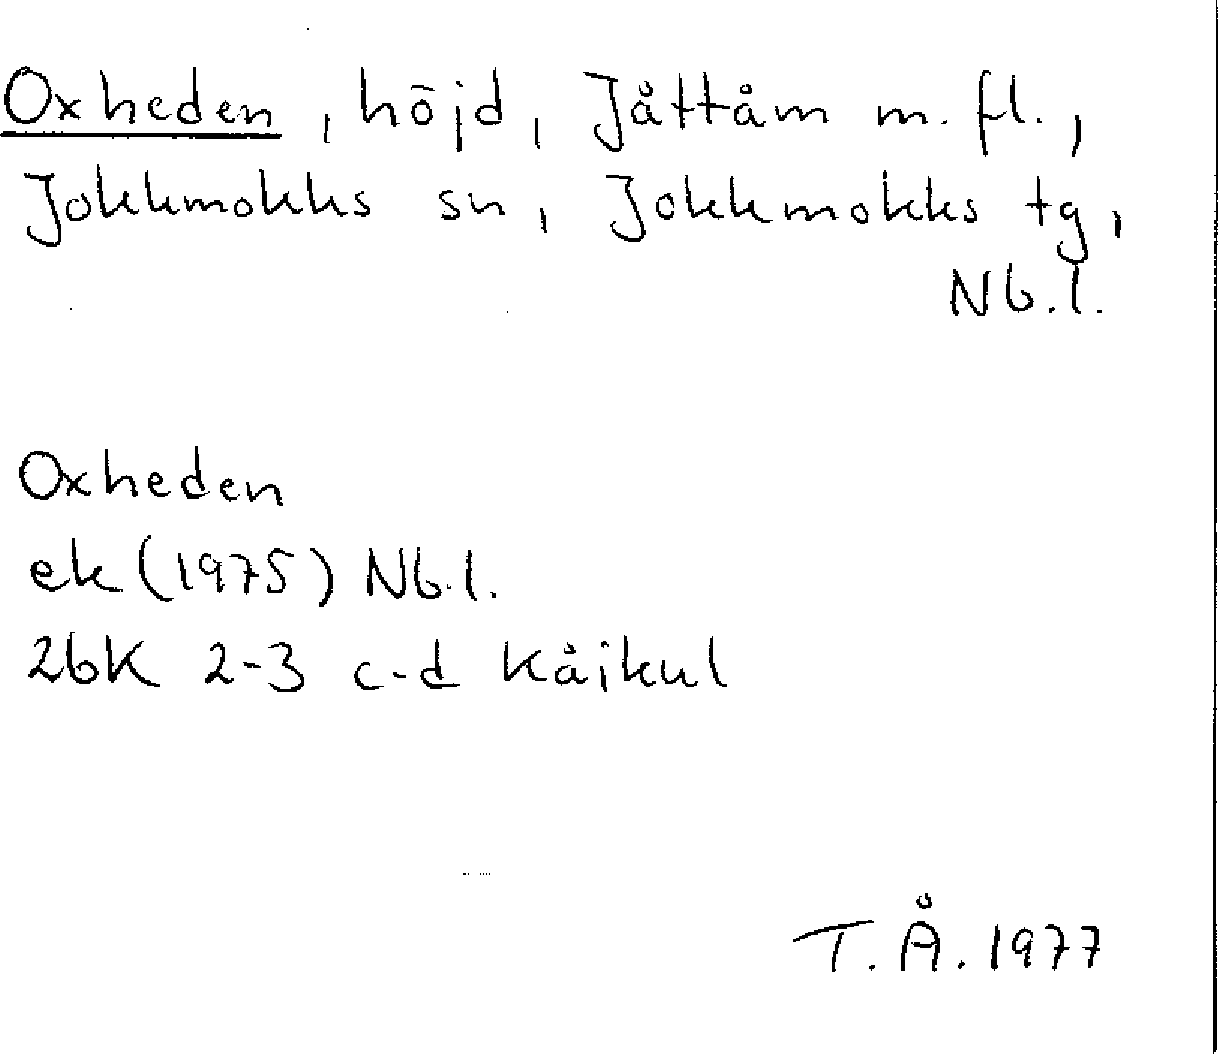 Oxheden, höjd, Jåttåm m. fl.,
Jokkmokks sn, Jokkmokks tg,
Nb.l.
Oxheden
ek (1975) Nb.l.
26K 2-3 c-d Kåikul
T.Å. 1977